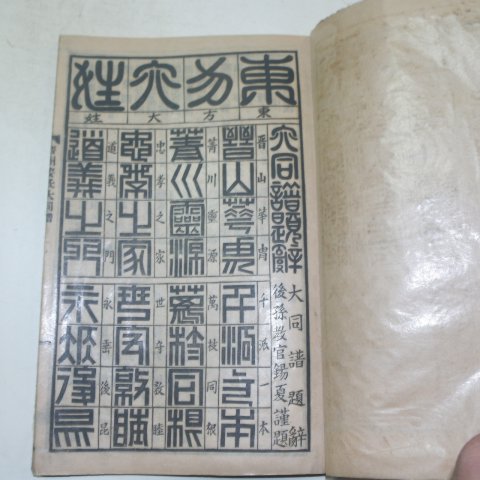 東方大姓
東方大姓
大同譜題辭
大同譜題辭
後孫教官錫夏謹題
晉山華胄千派一本
晉山華胄千派一本
菁川靈源萬枝同根
菁川靈源萬枝同根
忠孝之家世守敦睦
忠孝之家世守敦睦
道義之門永垂後昆
道義之門永垂後昆